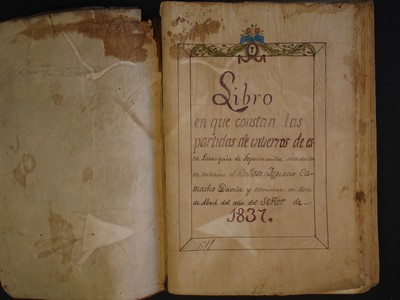 Libro
en que constan las
partidas de entierros de es
ta Parroquia de siendo cu
ra interino el Br Jose Ignacio Ca
macho Davila y comienza en dose
de Abril del año del Señor de
1837.